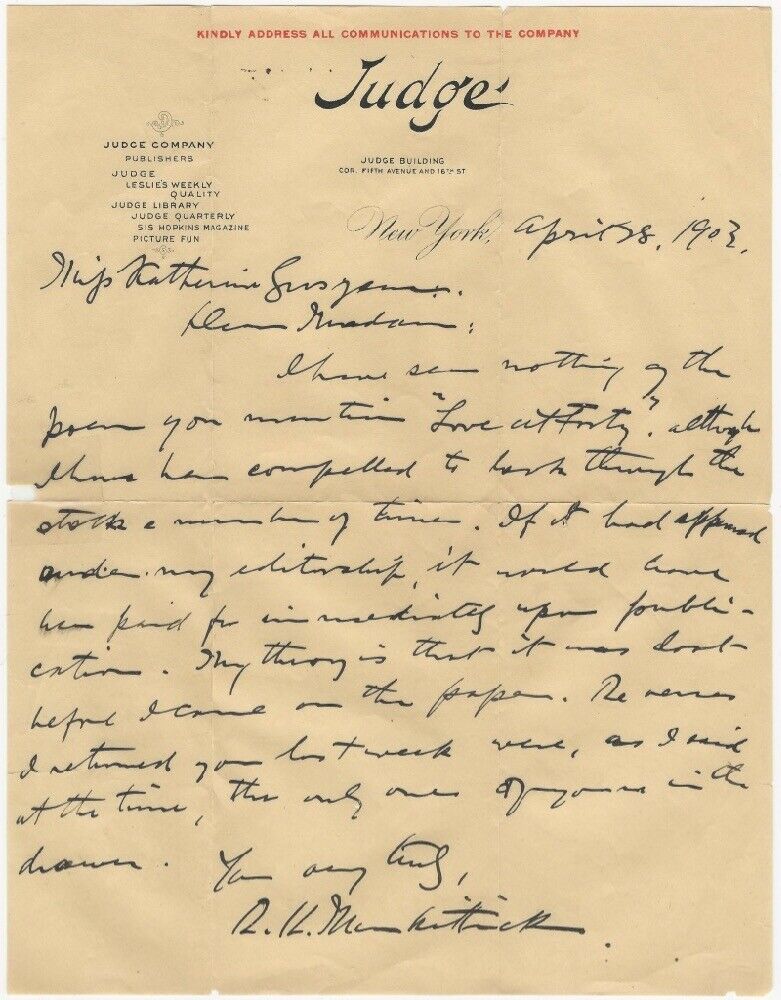 KINDLY ADDRESS ALL COMMUNICATIONS TO THE COMPANY
Judge
JUDGE COMPANY
PUBLISHERS
JUDGE
LESLIE'S WEEKLY
QUALITY
JUDGE LIBRARY
JUDGE QUARTERLY
SIS HOPKINS MAGAZINE
PICTURE FUN
JUDGE BUILDING
COR. FIFTH AVENUE AND 16TH ST
New York, April 28, 1903.
Miss Katherine
Dear Madam:
I have seen nothing of the
poem you mention "Love at Forty". although
I have been compelled to look through the
stock a number of times. If it had appeared
under my editorship, it would have
been paid for immediately upon publi-
cation. My theory is that it was lost
before I came on the paper. The verses
I returned you last week were, as I said
at the time, the only ones of yours in the
drawer.
Yours very truly,
R. K. Munkittrick